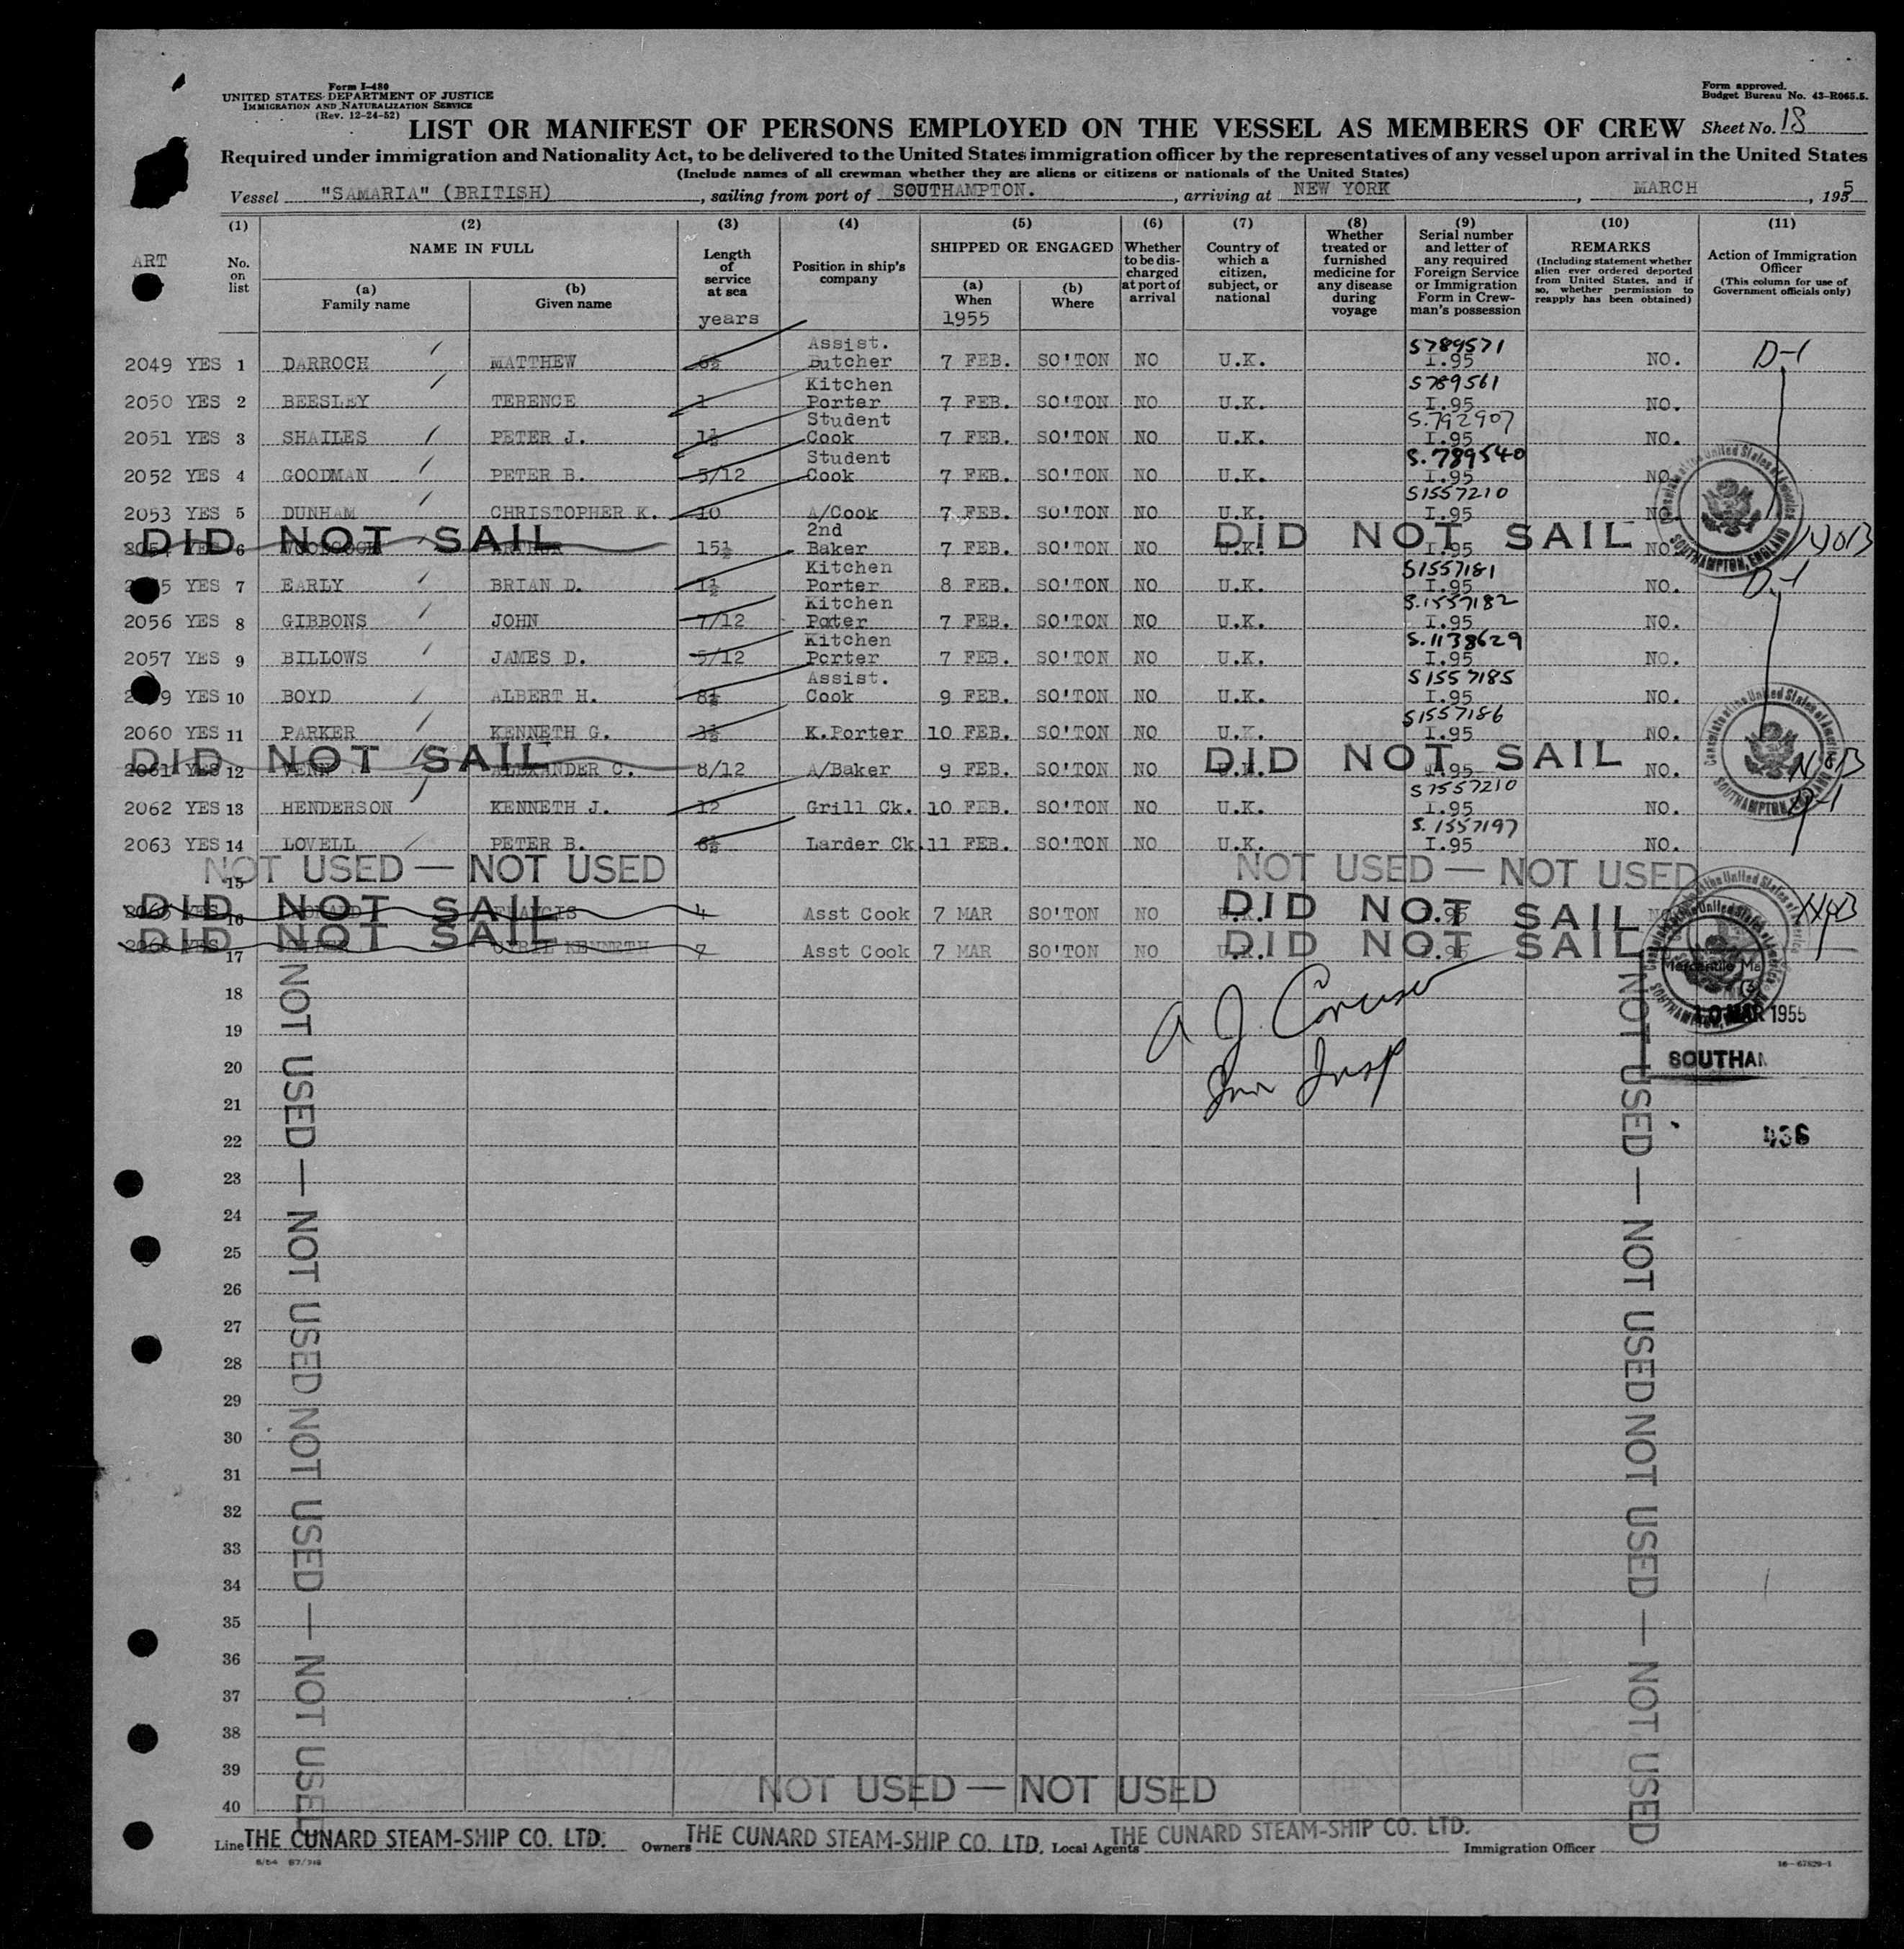 Form I-480
UNITED STATES DEPARTMENT OF JUSTICE
IMMIGRATION AND NATURALIZATION SERVICE
(Rev. 12-24-52)
Form approved.
Budget Bureau No. 43-R065.5.
LIST OR MANIFEST OF PERSONS EMPLOYED ON THE VESSEL AS MEMBERS OF CREW Sheet No. 18
Required under immigration and Nationality Act, to be delivered to the United States immigration officer by the representatives of any vessel upon arrival in the United States
(Include names of all crewman whether they are aliens or citizens or nationals of the United States)
Vessel "SAMARIA" (BRITISH), sailing from port of SOUTHAMPTON., arriving at NEW YORK, MARCH, 1955
(1) (2) (3) (4) (5) (6) (7) (8) (9) (10) (11)
ART
No. on list
NAME IN FULL
(a) Family name
(b) Given name
Length of service at sea
years
Position in ship's company
SHIPPED OR ENGAGED
(a) When
1955
(b) Where
Whether to be discharged at port of arrival
Country of which a citizen, subject, or national
Whether treated or furnished medicine for any disease during voyage
Serial number and letter of any required Foreign Service or Immigration Form in Crewman's possession
REMARKS
(Including statement whether alien ever ordered deported from United States, and if so, whether permission to reapply has been obtained)
Action of Immigration Officer
(This column for use of Government officials only)
2049 YES 1 DARROCH MATTHEW 6½ Assist. Butcher 7 FEB. SO'TON NO U.K. S789571 I.95 NO. D-1
2050 YES 2 BEESLEY TERENCE 1 Kitchen Porter 7 FEB. SO'TON NO U.K. S789561 I.95 NO.
2051 YES 3 SHAILES PETER J. 1½ Student Cook 7 FEB. SO'TON NO U.K. S.792907 I.95 NO.
2052 YES 4 GOODMAN PETER B. 5/12 Student Cook 7 FEB. SO'TON NO U.K. S.789540 I.95 NO.
2053 YES 5 DUNHAM CHRISTOPHER K. 10 A/Cook 7 FEB. SO'TON NO U.K. S1557210 I.95 NO.
DID NOT SAIL 6 15½ 2nd Baker 7 FEB. SO'TON NO U.K. DID NOT SAIL I.95 NO.
5 YES 7 EARLY BRIAN D. 1½ Kitchen Porter 8 FEB. SO'TON NO U.K. S1557181 I.95 NO. D-1
2056 YES 8 GIBBONS JOHN 7/12 Kitchen Poxter 7 FEB. SO'TON NO U.K. S.1557182 I.95 NO.
2057 YES 9 BILLOWS JAMES D. 5/12 Kitchen Porter 7 FEB. SO'TON NO U.K. S.1138629 I.95 NO.
2 9 YES 10 BOYD ALBERT H. 8½ Assist. Cook 9 FEB. SO'TON NO U.K. S1557185 I.95 NO.
2060 YES 11 PARKER KENNETH G. K.Porter 10 FEB. SO'TON NO U.K. S1557186 I.95 NO.
DID NOT SAIL 2061 YES 12 ALEXANDER C. 8/12 A/Baker 9 FEB. SO'TON NO DID NOT SAIL I.95 NO.
2062 YES 13 HENDERSON KENNETH J. 12 Grill Ck. 10 FEB. SO'TON NO U.K. S1557210 I.95 NO. D-1
2063 YES 14 LOVELL PETER B. 6½ Larder Ck. 11 FEB. SO'TON NO U.K. S.1557197 I.95 NO.
NOT USED — NOT USED 15 NOT USED — NOT USED
DID NOT SAIL 16 FRANCIS 4 Asst Cook 7 MAR SO'TON NO DID NOT SAIL
DID NOT SAIL 17 CYRIL KENNETH 7 Asst Cook 7 MAR SO'TON NO DID NOT SAIL
Consulate of the United States of America
SOUTHAMPTON, ENGLAND
Mercantile Ma
10 MAR 1955
SOUTHAM
Imm Insp
436
18
19
20
21
22
23
24
25
26
27
28
29
30
31
32
33
34
35
36
37
38
39
40
NOT USED — NOT USED NOT USED — NOT USED
NOT USED — NOT USED NOT USED — NOT USED
NOT USED — NOT USED
Line THE CUNARD STEAM-SHIP CO. LTD. Owners THE CUNARD STEAM-SHIP CO. LTD. Local Agents THE CUNARD STEAM-SHIP CO. LTD. Immigration Officer
16—67829-1